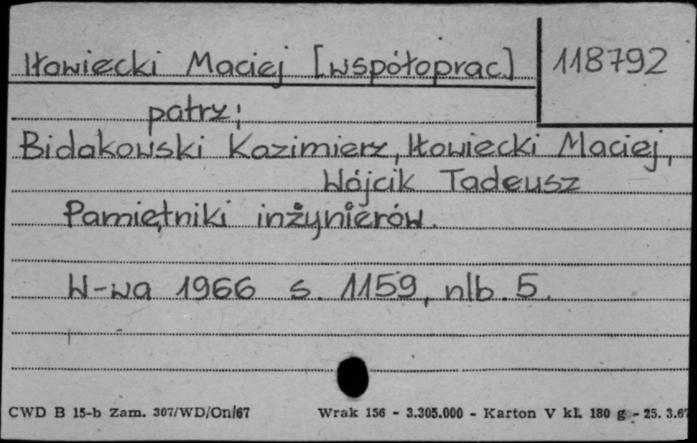 Iłowiecki Maciej [współoprac] 118792
patrz:
Bidakowski Kazimierz, Iłowiecki Maciej,
Wójcik Tadeusz
Pamiętniki inżynierów.
W-wa 1966 s. 1159, nlb. 5.
CWD B 15-b Zam. 307/WD/On/67 Wrak 156 - 3.305.000 - Karton V kl. 180 g - 25. 3.67